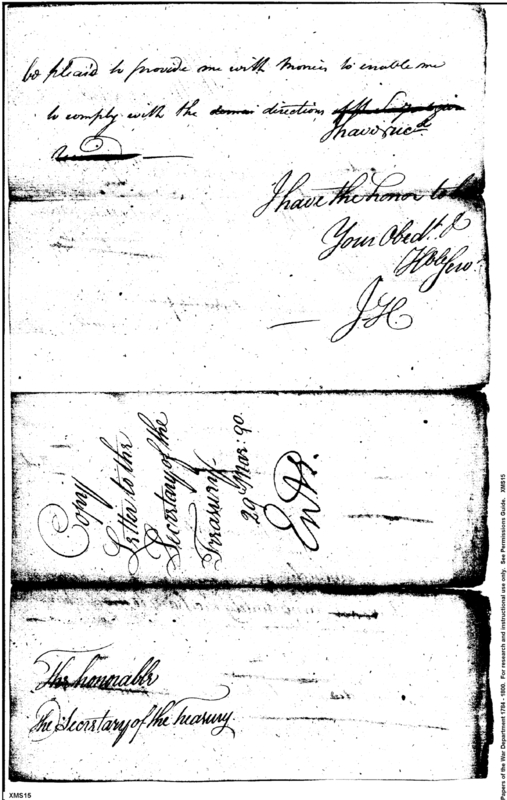 be pleas'd to provide me with monies to enable me
to comply with the directions
I have rec.d
I have the honor to be
Your Obed.t &
Hble Serv.t
J H
Copy
Letter to the
Secretary of the
Treasury
29 Mar: 90.
The honorable
The Secretary of the treasury
XMS15
Papers of the War Department 1784 - 1800. For research and instructional use only. See Permissions Guide. XMS15